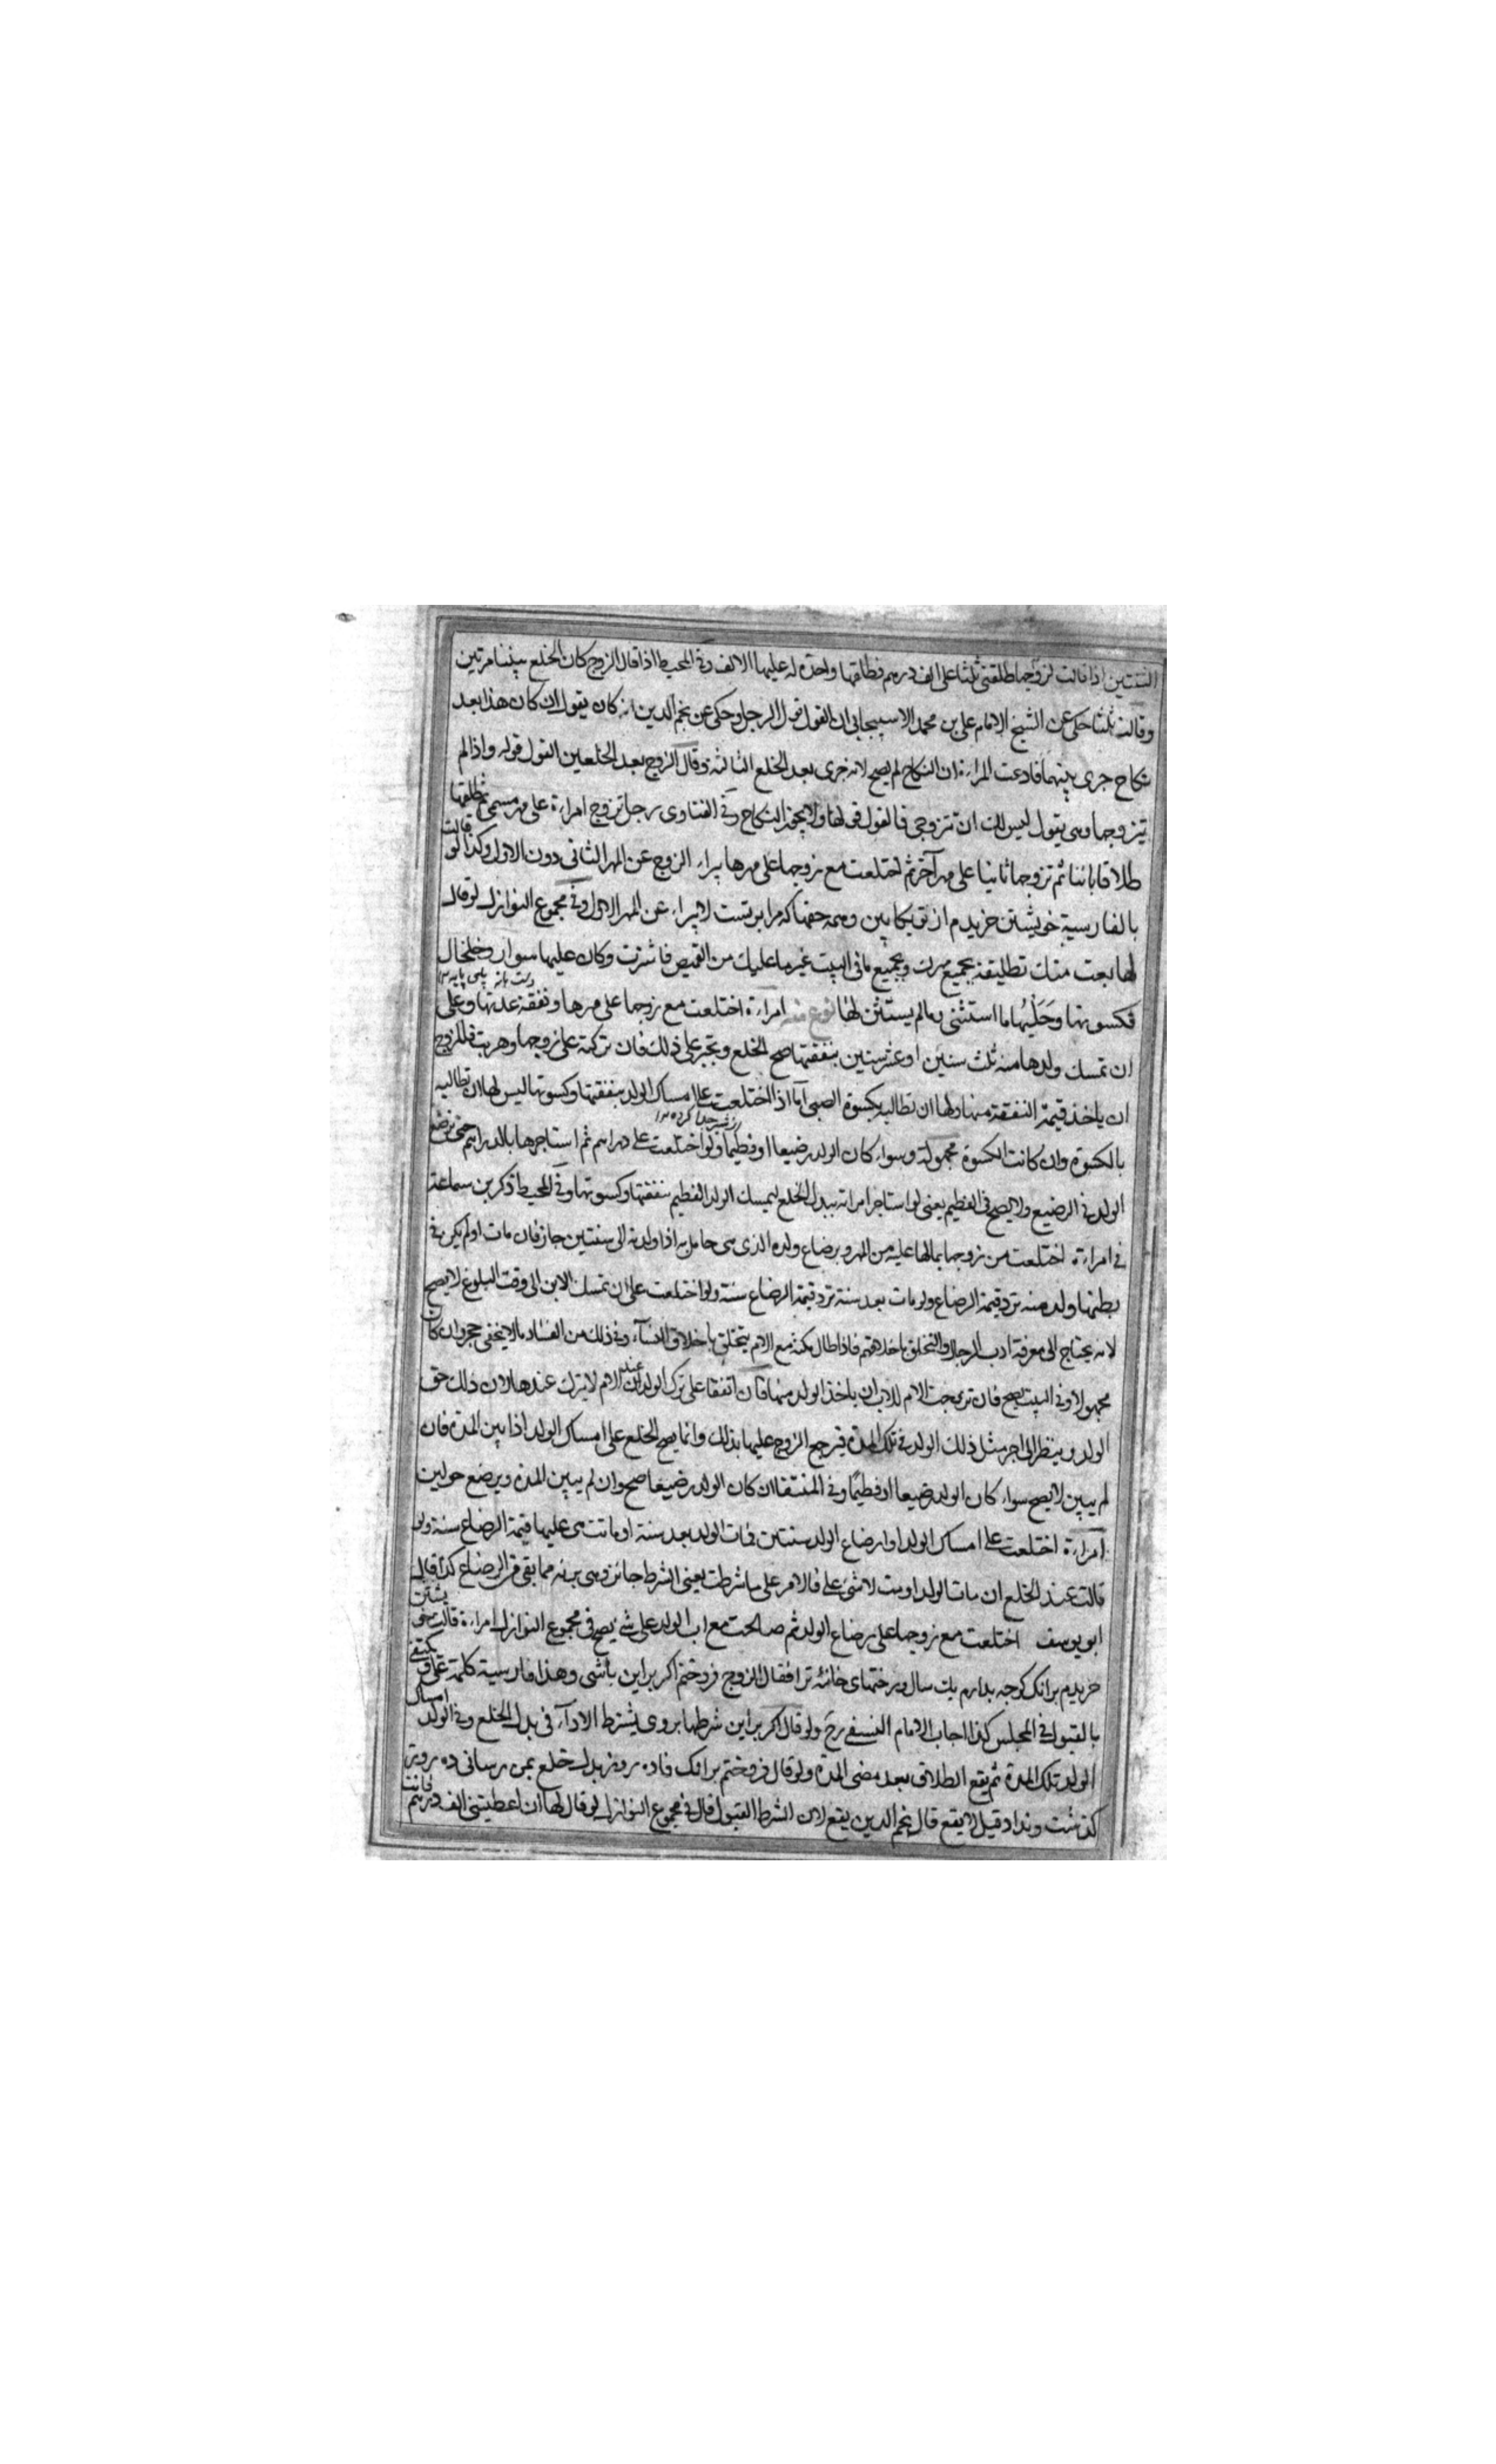 الثنتين اذا قالت لزوجها طلقني ثلثا على الف درهم فطلقها واحدة له عليها الالف وفي المحيط اذا قال الزوج كان الخلع بيننا مرتين
وقالت ثلثا حكى عن الشيخ الامام على بن محمد الاسبيجابي ان القول قول الرجل وحكى عن نجم الدين انه كان يقول ان كان هذا بعد
نكاح جرى بينهما فادعت المراءة ان النكاح لم يصح لانه جرى بعد الخلع الثالث وقال الزوج بعد الخلعين القول قوله واذا لم
يتزوجها وهى يقول ليس لك ان تتزوجي فالقول قولها ولا يجوز النكاح وفي الفتاوى رجل تزوج امراءة على مهر مسمى ثم طلقها
طلاقا بائنا ثم تزوجها ثانيا على مهر آخر ثم اختلعت مع زوجها على مهرها يبراء الزوج عن المهر الثانى دون الاول وكذا لو قالت
بالفارسية خويشتن خريدم از تو بكابين وهمه حقها كه مرا بر تست لا يبراء عن المهر الاول وفي مجموع النوازل لو قال
لها بعت منك تطليقة بجميع مهرك وبجميع مافي البيت غير ما عليك من القميص فاشترت وكان عليها سوار وخلخال
فكسوتها وحليها ما استثنى وما لم يستثن لها نوع منه امراءة اختلعت مع زوجها على مهرها ونفقة عدتها وعلى
ان تمسك ولدها منه ثلث سنين او عشر سنين بنفقتها صح الخلع وتجبر على ذلك فان تركته على زوجها وهربت فللزوج
ان ياخذ قيمة النفقة منها ولها ان تطالبه بكسوة الصبى اما اذا اختلعت على امساك الولد بنفقتها وكسوتها ليس لها ان تطالبه
بالكسوة وان كانت الكسوة مجهولة وسواء كان الولد رضيعا او فطيما ولو اختلعت على دراهم ثم استاجرها بالدراهم حتى ترضع
الولد في الرضيع ولا يصح في الفطيم يعنى لو استاجر امراته ببدل الخلع لتمسك الولد الفطيم بنفقتها وكسوتها وفي المحيط ذكر بن سماعة
في امراءة اختلعت من زوجها بمالها عليه من المهر وبرضاع ولده الذى هى حامل به اذا ولدته الى سنتين جاز فان مات او لم يكن في
بطنها ولد منه ترد قيمة الرضاع ولو مات بعد سنة ترد قيمة الرضاع سنة ولو اختلعت على ان تمسك الابن الى وقت البلوغ لا يصح
لانه يحتاج الى معرفة ادب الرجال والتخلق باخلاقهم فاذا طال مكثه مع الام يتخلق باخلاق النساء وفي ذلك من الفساد مالا يخفى وان كان
مجهولا وفي البنت يصح فان تزوجت الام للاب ان ياخذ الولد منها فان اتفقا على ترك الولد عند الام لا يترك عندها لان ذلك حق
الولد وينظر الى اجر مثل ذلك الولد في تلك المدة فيرجع الزوج عليها بذلك وانما يصح الخلع على امساك الولد اذا بين المدة فان
لم يبين لا يصح سواء كان الولد رضيعا او فطيما وفي المنتقا ان كان الولد رضيعا صح وان لم يبين المدة ويرضع حولين
امراءة اختلعت على امساك الولد او ارضاع الولد سنتين فمات الولد بعد سنة او ماتت هى عليها قيمة الرضاع سنة ولو
قالت عند الخلع ان مات الولد او مت لا شئ على فالامر على ما شرطت يعنى الشرط جائز وهى بريه مما بقى من الرضاع كذا قال
ابو يوسف اختلعت مع زوجها على رضاع الولد ثم صالحت مع اب الولد على شئ يصح في مجموع النوازل امراءة قالت خويشتن
خريدم برانك كوجه بدارم يك سال ورختهاى خانه ترا فقال الزوج فروختم اكر براين باشى وهذا فارسية كلمة على ويكتفى
بالقبول في المجلس كذا اجاب الامام النسفى رح ولو قال اكر براين شرطها بروى يشترط الاداء في بدل الخلع وفي الولد امساك
الولد تلك المدة ثم يقع الطلاق بعد مضى المدة ولو قال فروختم برانك تاده روز بدل خلع بمن رسانى ده روز
كذشت ونداد قيل لا يقع قال نجم الدين يقع لان الشرط القبول قال في مجموع النوازل لو قال لها ان اعطيتنى الف درهم فانت